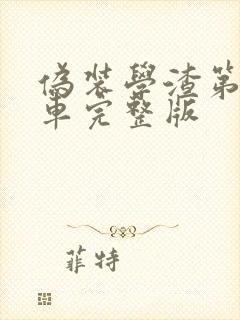 偽装學渣第
車完整版
菲特